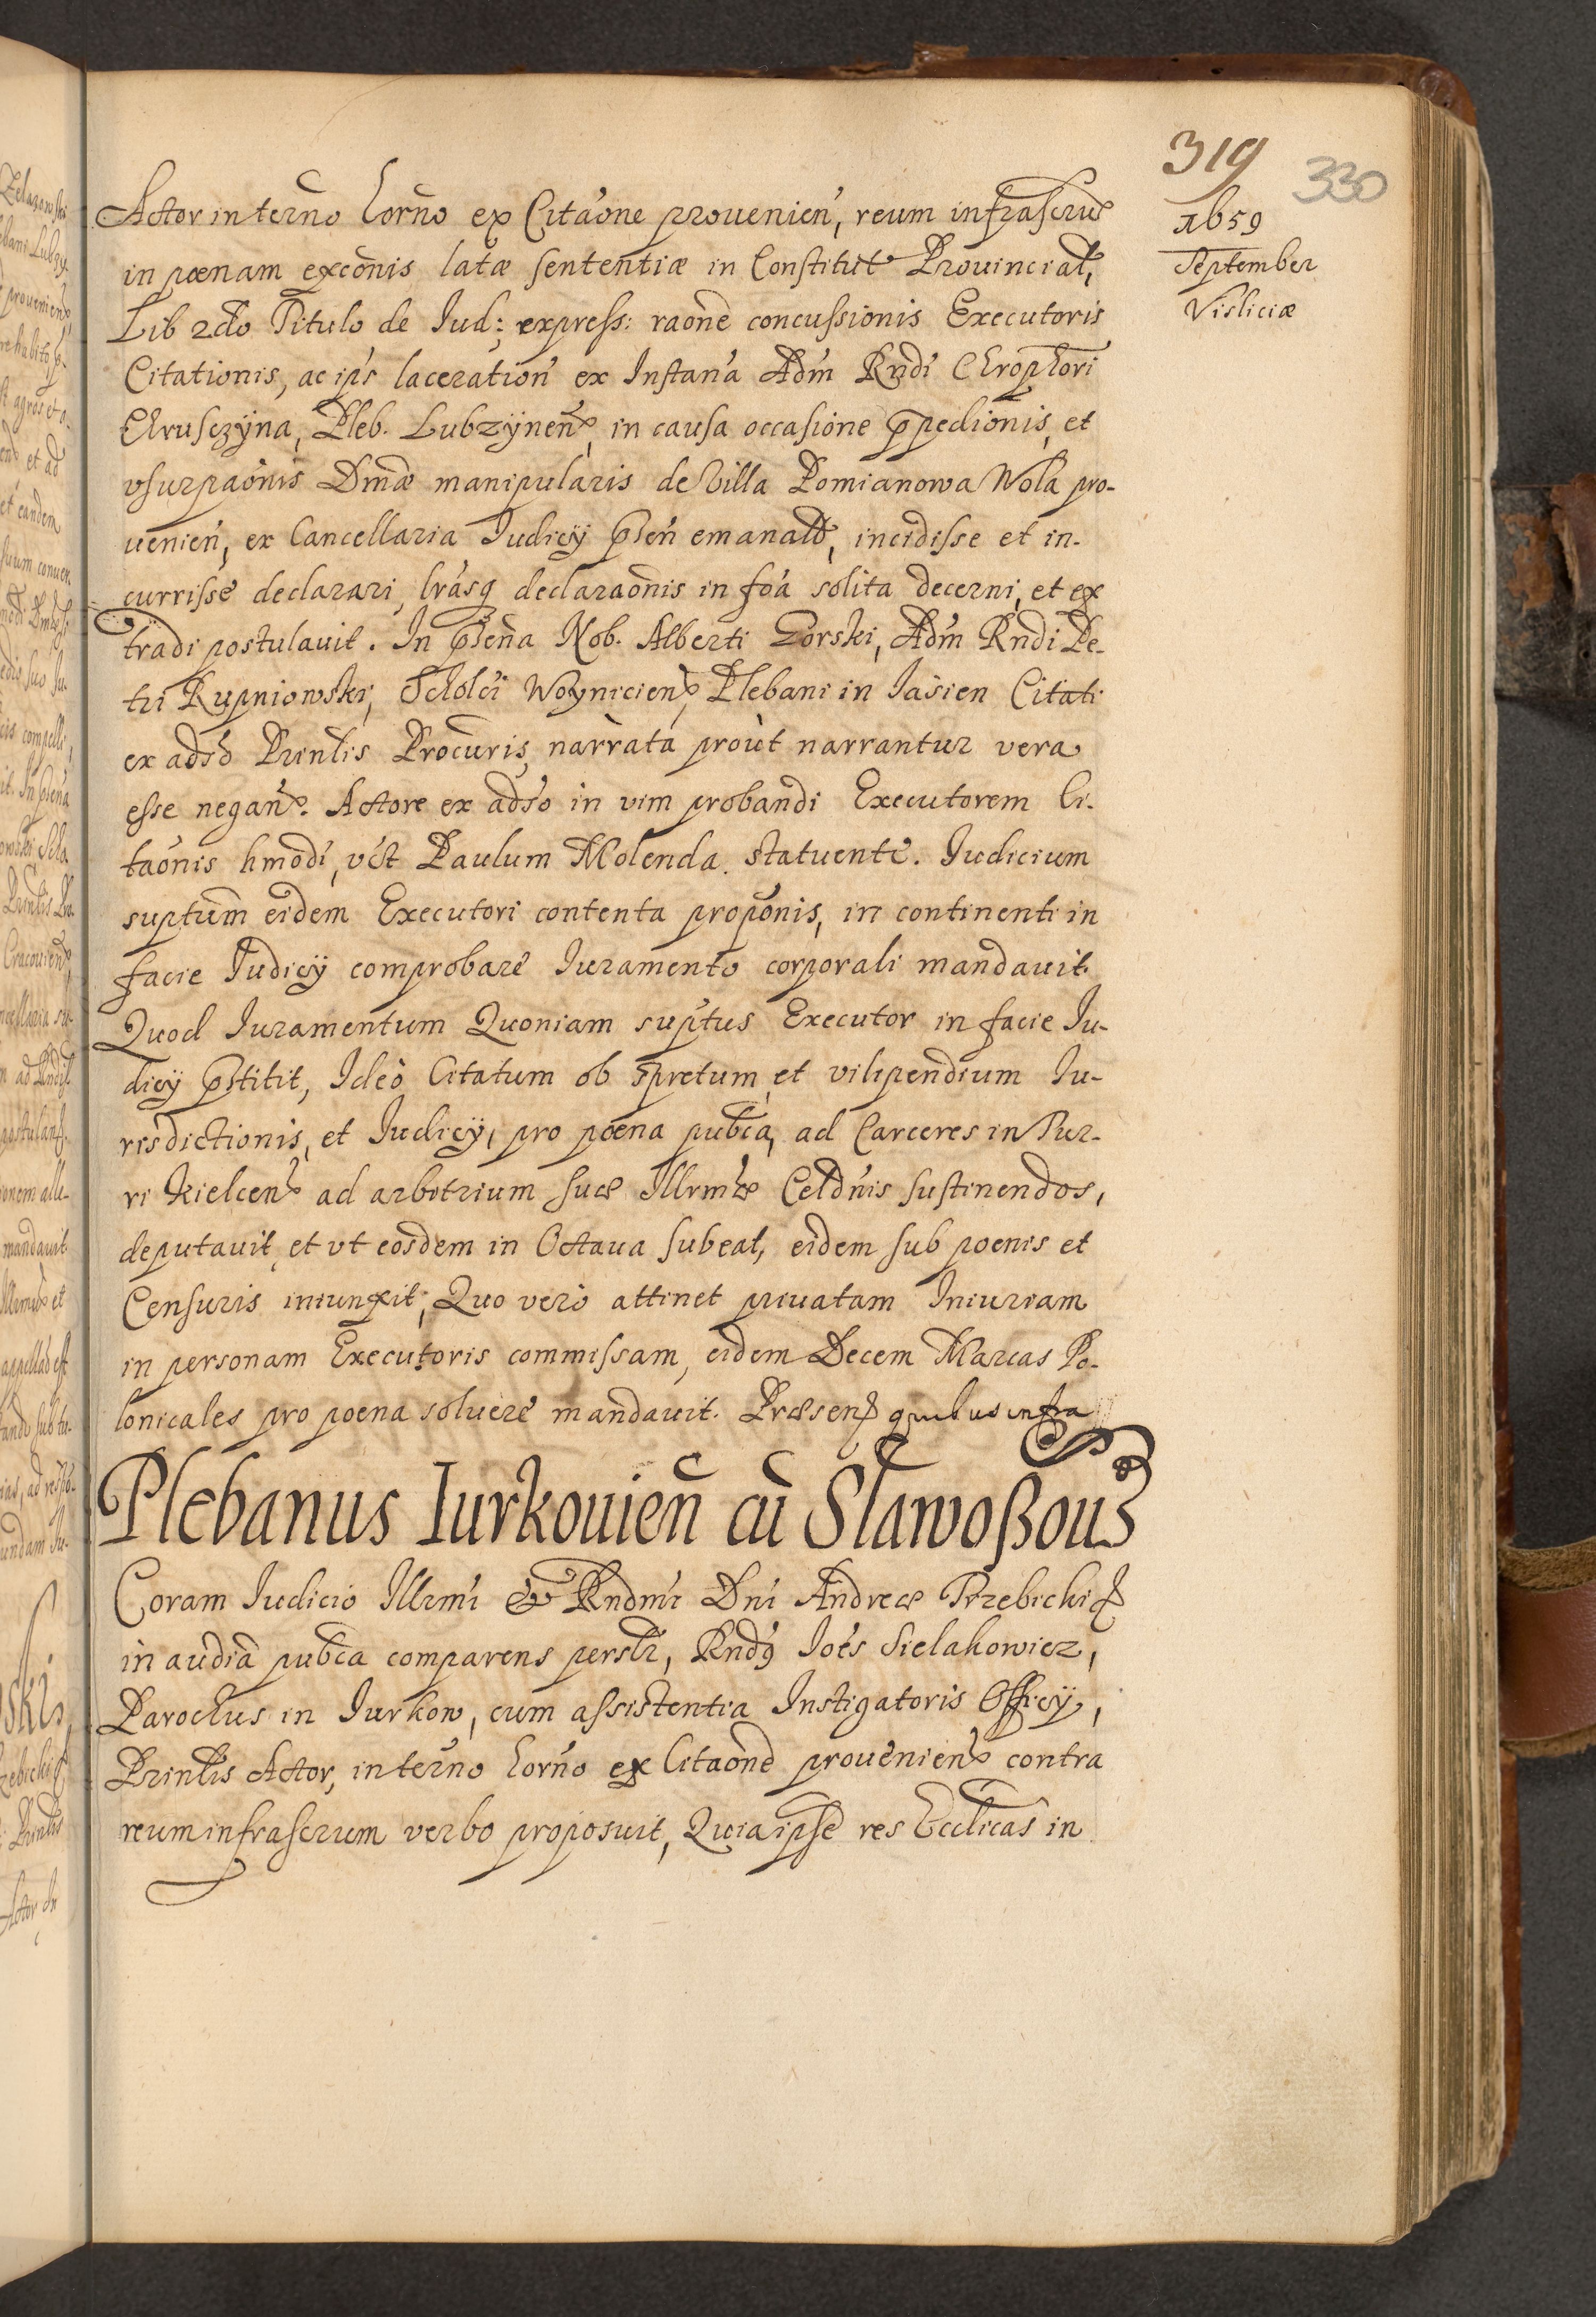 319
330
1659
September
Visliciæ
Actor in term̃o horño ex Citãone prouenień, reum infrascrũ
in pœnam excõnis latæ sententiæ in Constitut Prouincial,
Lib 2do Titulo de Iud: express: raõne concussionis Executoris
Citationis, ac ip̃s laceratioń ex Instan̄a Adm̃ Rńdi Chroph̃ori
Chrusczÿna, Pleb. Lubzÿneń, in causa occasione p̄pedionis, et
vsurpaõnis Dm̃æ manipularis de Villa Pomianowa Wola pro-
uenień, ex Cancellaria Iudicÿ p̃seń emanatæ, incidisse et in-
currisse declarari, lrãsq declaraõnis in foã solita decerni, et ex
tradi postulauit. In p̃seña Nob. Alberti Gorski, Adm̃ Rńdi Pe-
tri Rupniowski, Schol̃ci Woyniciene, Plebani in Iasien Citati
ex ads̃o Prinl̃is Procur̃is, narrata prout narrantur vera
esse negań. Actore ex ads̃o in vim probandi Executorem Ci-
taõnis hmõdi, vct̃ Paulum Molenda statuente. Iudicium
suptum̃ eidem Executori contenta propõnis, in continenti in
facie Iudicÿ comprobare Iuramento corporali mandauit.
Quod Iuramentum Quoniam sup̃tus Executor in facie Iu-
dicÿ p̃stitit, Ideò Citatum ob spretum, et vilipendium Iu-
risdictionis, et Iudicÿ, pro pœna pub̃ca, ad Carceres in Tur-
ri Kielceń ad arbitrium suæ Illrmæ Celdñis sustinendos,
deputauit, et vt eosdem in Octaua subeat, eidem sub poenis et
Censuris iniunxit; Quo verò attinet priuatam Iniuriam
in personam Executoris commissam, eidem Decem Marcas Po-
lonicales pro poena soluere mandauit. Præsenł quibus infra
Plebanus Iurkouień cũ Slawoßou
Coram Iudicio Illrmi & Rndmi Dńi Andreæ Trzebicki &
in audiã pub̃ca comparens persl̃r, Rndq Ioẽs Sielakowicz,
Parochus in Iurkow, cum assistentia Instigatoris Officÿ,
Prinl̃is Actor, in term̃o horño ex Citaõne prouenień contra
reum infrascrum verbo proposuit, Quia ipse res Ecclicas in